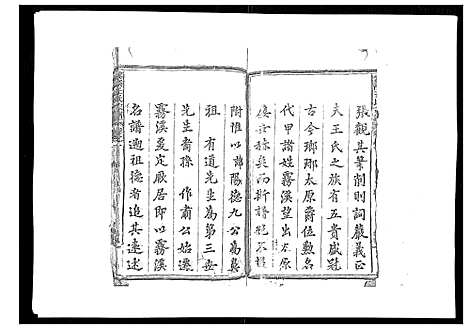 張觀其筆削則詞嚴義正
夫王氏之族有五貴盛冠
古今瑯琊太原爵位勲名
代甲諸姓霧溪望出太原
矣而斯譜
附惟以譚陽德九公為鼻
祖 有道先生為第三世
先生裔孫作肅公始遷
霧溪爰定厥居即以霧溪
名譜迺祖德者追其遠述